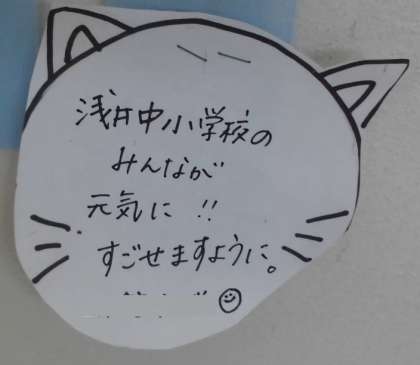 浅井中小学校の
みんなが
元気に!!
すごせますように。